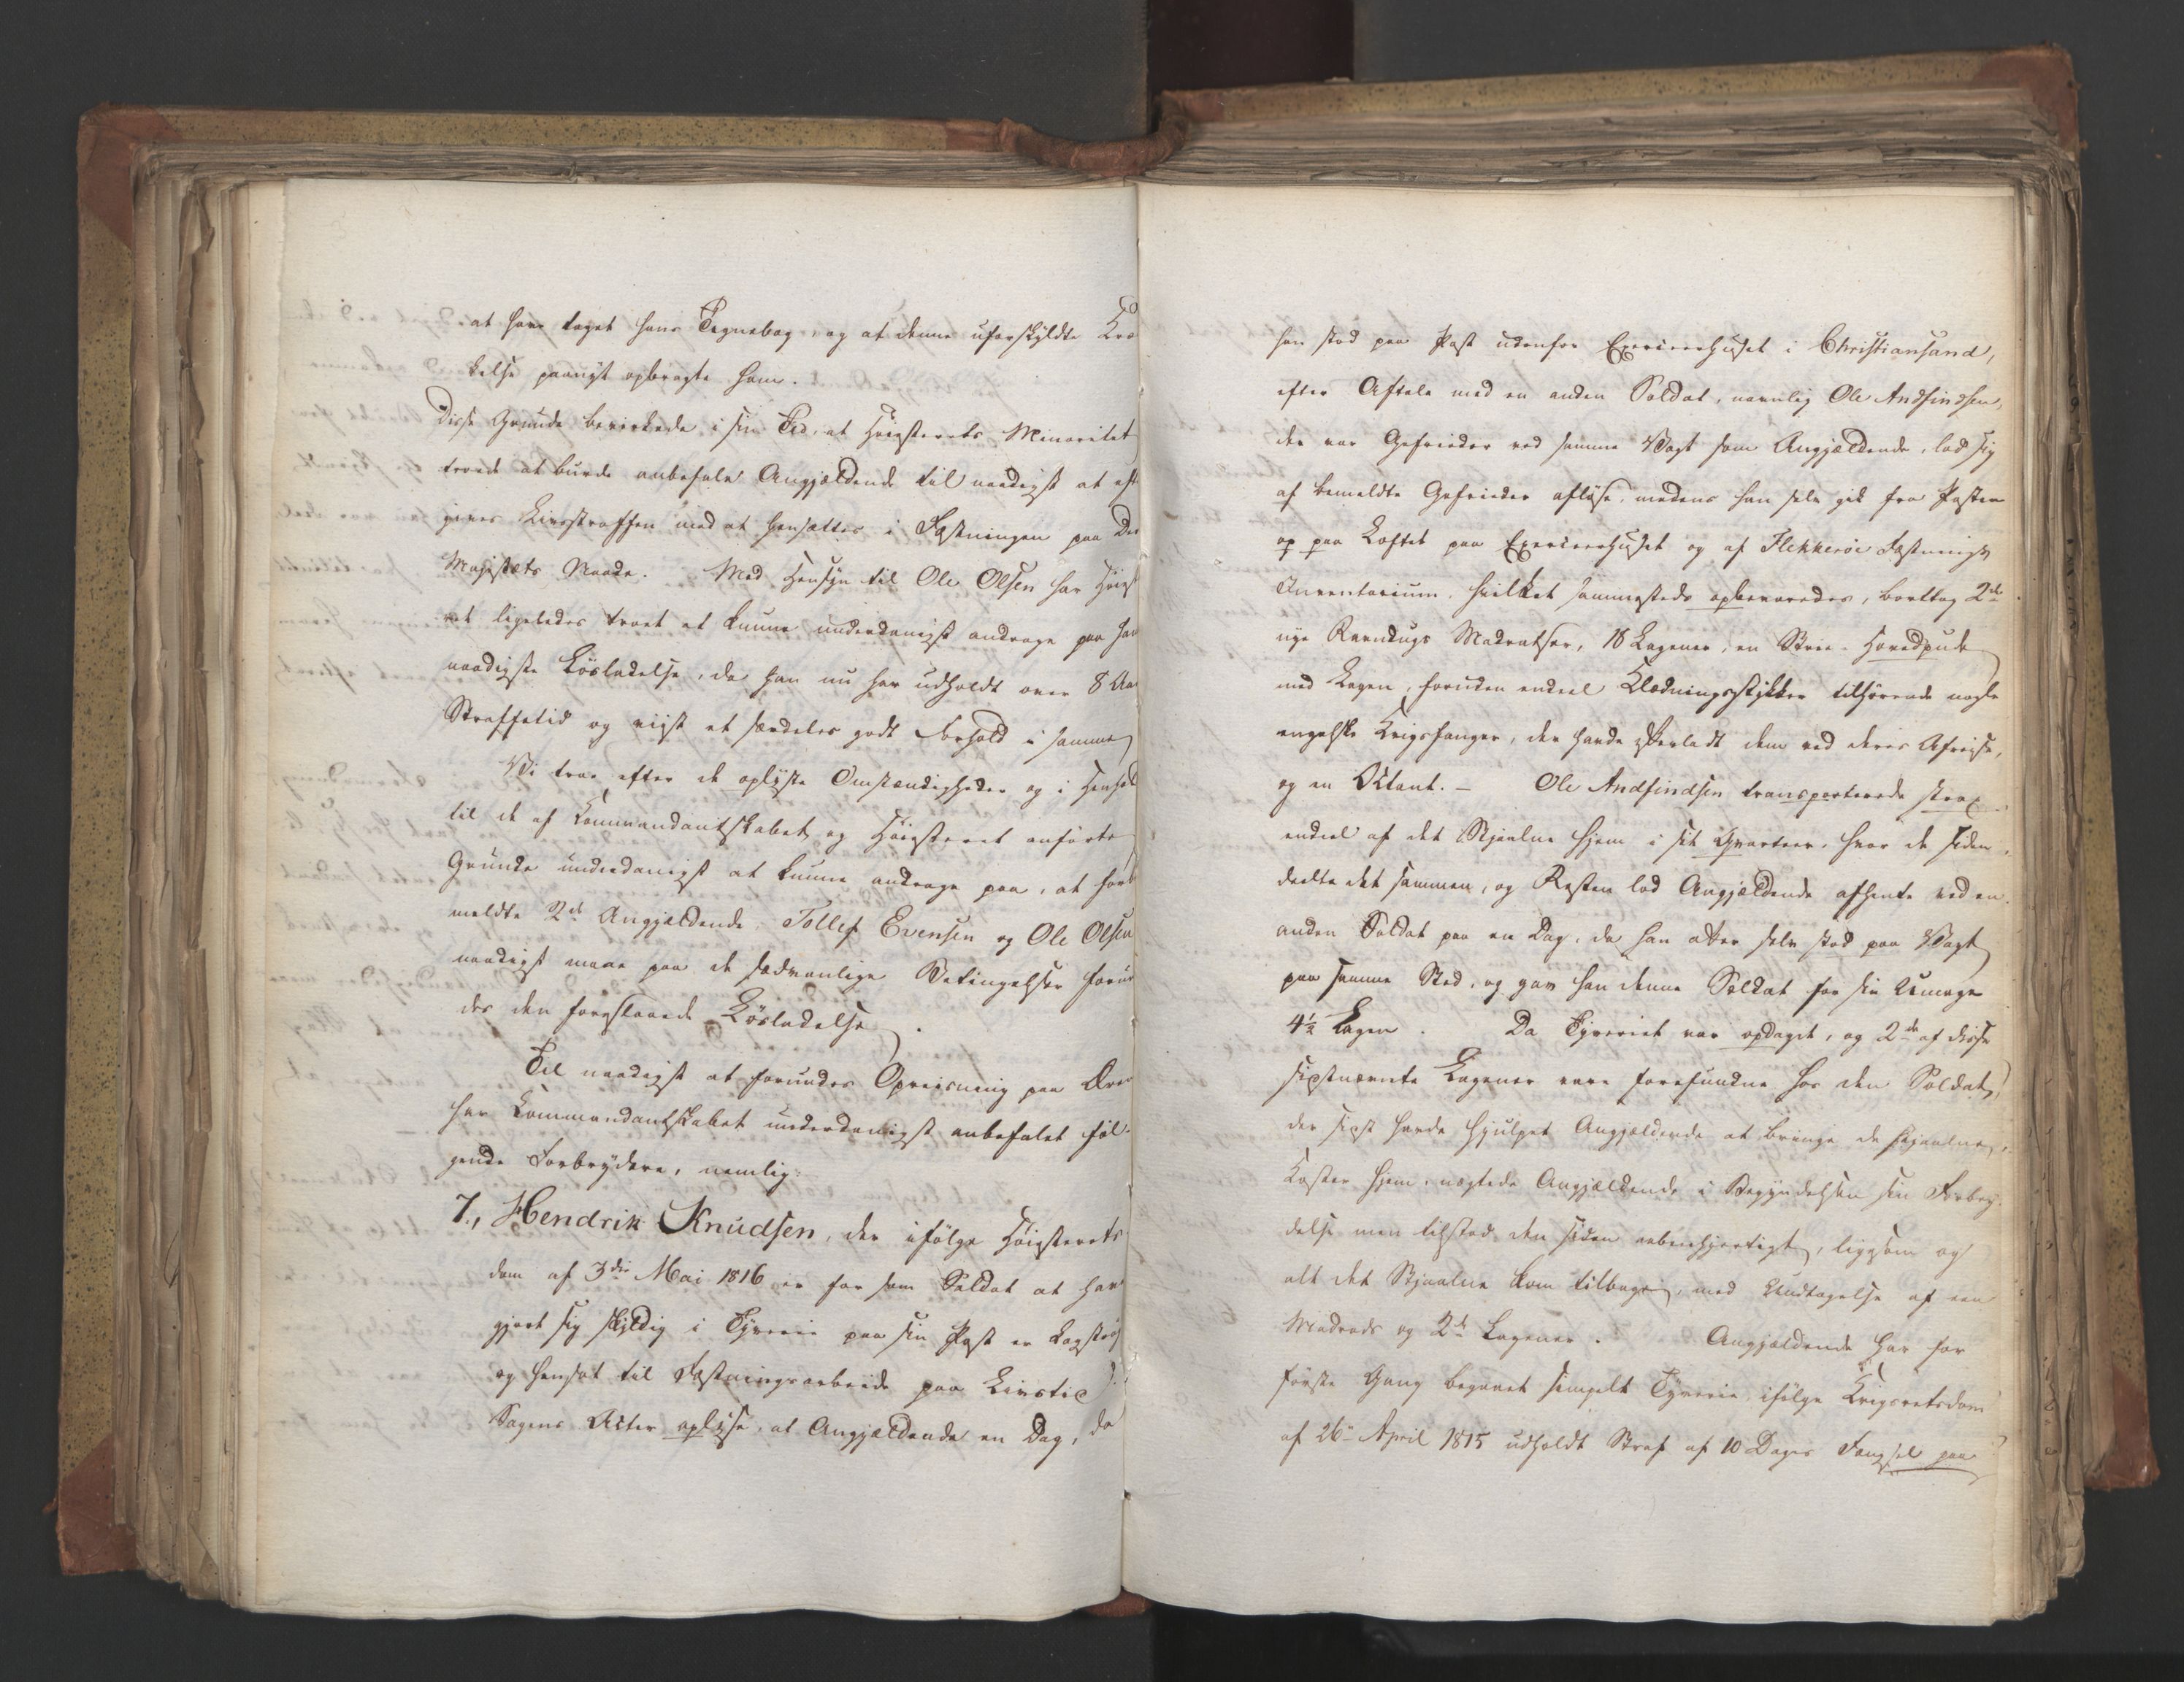 at have taget hans Tegnebog, og at denne uforskyldte Kræ
kelse paanyt opbragte ham.
Disse Grunde bevirkede i sin Tid, at Høiesterets Minoritet
troede at burde anbefale Angjældende til naadigst at eft
gives Livsstraffen med at hensættes i Fæstningen paa De
Majestæts Naade. Med Hensyn til Ole Olsen har Høiest
ret ligeledes troet at kunne underdanigst andrage paa han
naadigste Løsladelse, da han nu har udholdt over 8 Aar
Straffetid og viist et særdeles godt Forhold i samme
Vi troe efter de oplyste Omstændigheder og i Henhold
til de af Kommandantskabet og Høiesteret anførte
Grunde underdanigst at kunne andrage paa, at forb
meldte 2de Angjældende Tollef Evensen og Ole Olsen
naadigst maae paa de sædvanlige Betingelser forun
des den foreslaaede Løsladelse.
Til naadigst at forundes Opreisning paa Ære
har Kommandantskabet underdanigst anbefalet føl-
gende Forbrydere, nemlig:
7., Hendrik Knudsen, der ifølge Høiesterets
dom af 3die Mai 1816 er for som Soldat at have
gjort sig skyldig i Tyverie paa sin Post er kagstrøg
og hensat til Fæstningsarbeide paa Livstid.
Sagens Acter oplyse, at Angjældende en Dag, da
han stod paa Post udenfor Exerceerhuset i Christiansand,
efter Aftale med en anden Soldat, navnlig Ole Andfindsen,
der var Gefreider ved samme Vagt som Angjældende, lod sig
af bemeldte Gefreider afløse, medens han selv gik fra Posten
op paa Loftet paa Exerceerhuset og af Flekkerøe Fæstnings
Inventarium, hvilket sammesteds opbevaredes, borttog 2de
nye Ravndugs Madratser, 18 Lagener, en Strie-Hovedpude
med Lagen, foruden endeel Klædningsstykker tilhørende nogle
engelske Krigsfanger, der havde efterladt dem ved deres Afreise,
og en Octant. – Ole Andfindsen transporterede strax
endeel af det Stjaalne hjem i sit Qvarteer, hvor de siden
deelte det sammen, og Resten lod Angjældende afhente ved en
anden Soldat paa en Dag, da han atter selv stod paa Vagt
paa samme Sted, og gav han denne Soldat for sin Umage
4½ Lagen. Da Tyveriet var opdaget, og 2de af disse
sidstnævnte Lagener vare forefundne hos den Soldat,
der sidst havde hjulpet Angjældende at bringe de stjaalne
Koster hjem, nægtede Angjældende i Begyndelsen sin Forbry-
delse men tilstod den siden aabenhjertigt, ligesom og
alt det Stjaalne kom tilbage, med Undtagelse af een
Madrads og 2de Lagener. Angjældende har for
første Gang begaaet simpelt Tyverie ifølge Krigsretsdom
af 26de April 1815 udholdt Straf af 10 Dages Fængsel paa